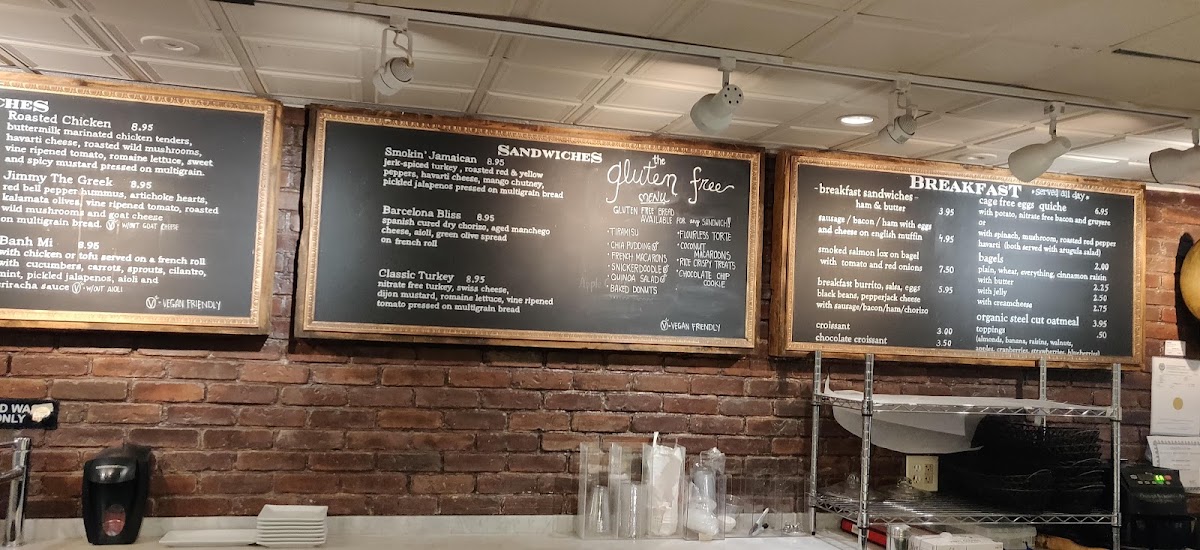 CHES
Roasted Chicken 8.95
buttermilk marinated chicken tenders,
havarti cheese, roasted wild mushrooms,
vine ripened tomato, romaine lettuce, sweet
and spicy mustard pressed on multigrain.
Jimmy The Greek 8.95
red bell pepper hummus, artichoke hearts,
kalamata olives, vine ripened tomato, roasted
wild mushrooms and goat cheese
on multigrain bread. V - W/OUT GOAT CHEESE
Banh Mi 8.95
with chicken or tofu served on a french roll
with cucumbers, carrots, sprouts, cilantro,
mint, pickled jalapenos, aioli and
sriracha sauce V - W/OUT AIOLI
V - VEGAN FRIENDLY
SANDWICHES
Smokin' Jamaican 8.95
jerk-spiced turkey, roasted red & yellow
peppers, havarti cheese, mango chutney,
pickled jalapenos pressed on multigrain bread
Barcelona Bliss 8.95
spanish cured dry chorizo, aged manchego
cheese, aioli, green olive spread
on french roll
Classic Turkey 8.95
nitrate free turkey, swiss cheese,
dijon mustard, romaine lettuce, vine ripened
tomato pressed on multigrain bread
the
gluten free
MENU
GLUTEN FREE BREAD
AVAILABLE FOR any SANDWICH!!
• TIRAMISU
• CHIA PUDDING V
• FRENCH MACARONS
• SNICKERDOODLE V
• QUINOA SALAD V
• BAKED DONUTS
• FLOURLESS TORTE
• COCONUT
MACAROONS
• RICE CRISPY TREATS
• CHOCOLATE CHIP
COOKIE
V - VEGAN FRIENDLY
BREAKFAST
• served all day •
- breakfast sandwiches -
ham & butter 3.95
sausage / bacon / ham with eggs
and cheese on english muffin 4.95
smoked salmon lox on bagel
with tomato and red onions 7.50
breakfast burrito, salsa, eggs 5.95
black beans, pepperjack cheese
with sausage/bacon/ham/chorizo
croissant 3.00
chocolate croissant 3.50
cage free eggs quiche 6.95
with potato, nitrate free bacon and gruyere
with spinach, mushroom, roasted red pepper
havarti (both served with arugula salad)
bagels 2.00
plain, wheat, everything, cinnamon raisin
with butter 2.25
with jelly 2.50
with creamcheese 2.75
organic steel cut oatmeal 3.95
toppings .50
(almonds, banana, raisins, walnuts,
apples, cranberries, strawberries, blueberries)
ONLY